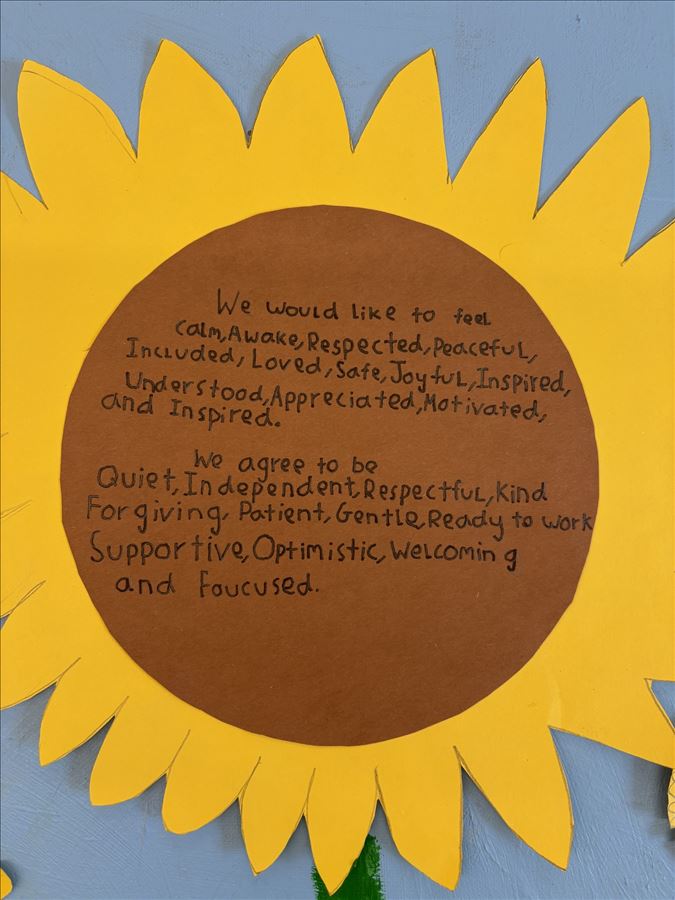 We would like to feel
Calm, Awake, Respected, Peaceful,
Included, Loved, Safe, Joyful, Inspired,
Understood, Appreciated, Motivated,
and Inspired.
We agree to be
Quiet, Independent, Respectful, Kind
Forgiving, Patient, Gentle, Ready to work
Supportive, Optimistic, Welcoming
and Foucused.